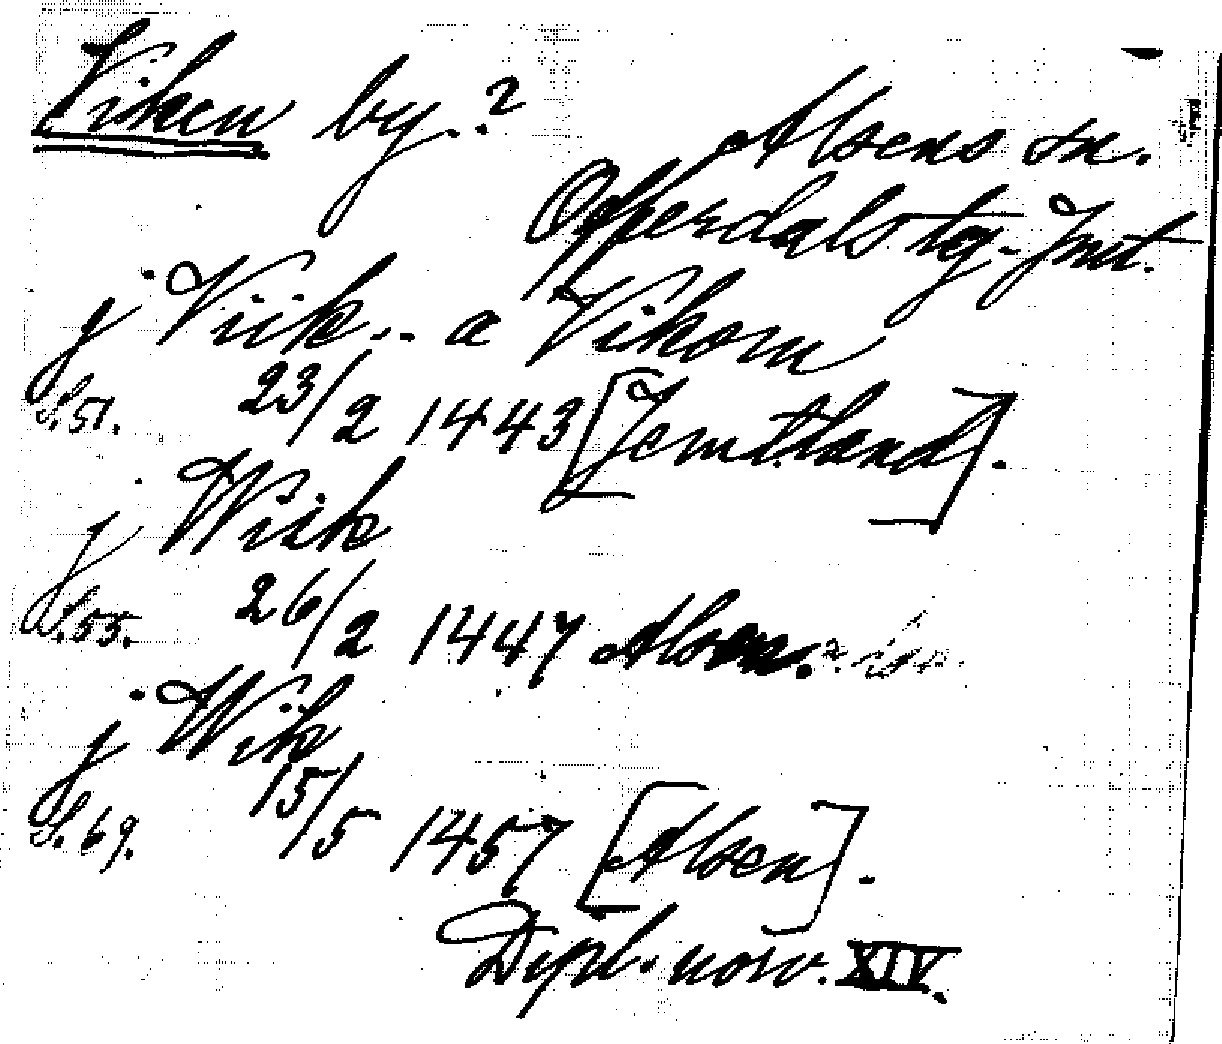 Viken by.?
Alsens sn.
Offerdals tg. Jmt.
j Viik .. a Vikom
S. 51. 23/2 1443 [Jemtland].
j Wiik
S. 55. 26/2 1447 Alsen.
j Wik
S. 69. 15/5 1457 [Alsen].
Dipl. norv. XIV.